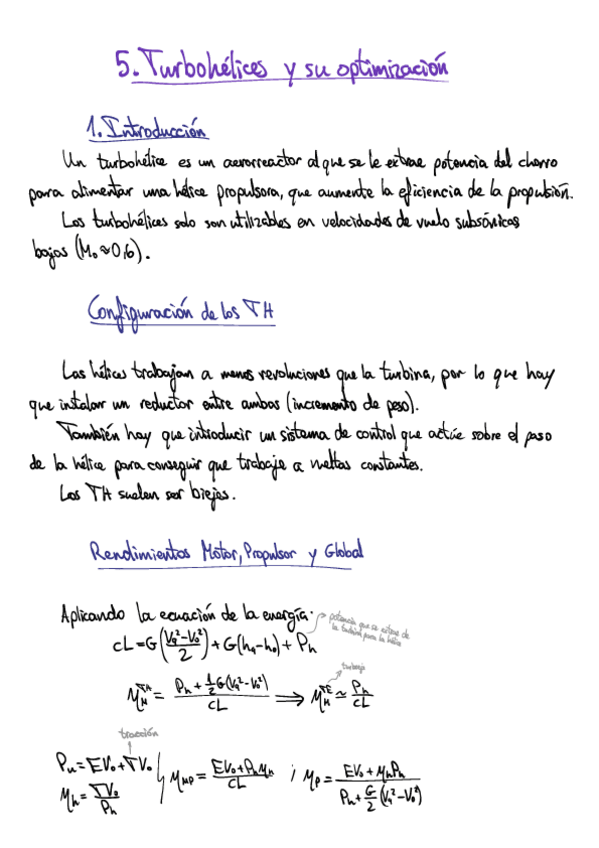 5. Turbohélices y su optimización
1. Introducción
Un turbohélice es un aerorreactor al que se le extrae potencia del chorro
para alimentar una hélice propulsora, que aumente la eficiencia de la propulsión.
Los turbohélices solo son utilizables en velocidades de vuelo subsónicas
bajas (M₀≈0,6).
Configuración de los TH
Las hélices trabajan a menos revoluciones que la turbina, por lo que hay
que instalar un reductor entre ambas (incremento de peso).
También hay que introducir un sistema de control que actúe sobre el paso
de la hélice para conseguir que trabaje a vueltas constantes.
Los TH suelen ser biejes.
Rendimientos Motor, Propulsor y Global
Aplicando la ecuación de la energía:
potencia que se extrae de
la turbina para la hélice
cL = G((V₉²-V₀²)/2) + G(h₉-h₀) + Pₕ
turboeje
η_M^TH = (Pₕ + ½G(V₉²-V₀²))/cL ⟹ η_M^TE ≃ Pₕ/cL
tracción
Pᵤ = EV₀ + TV₀
ηₕ = TV₀/Pₕ
η_MP = (EV₀ + Pₕηₕ)/cL ; η_P = (EV₀ + ηₕPₕ)/(Pₕ + G/2 (V₉²-V₀²))